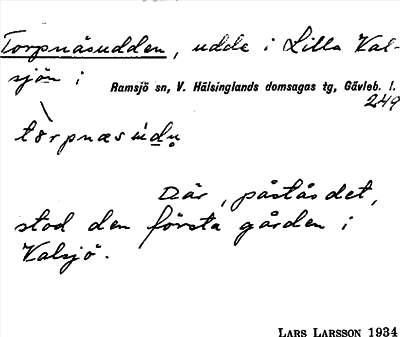 Torpnäsudden, udde i Lilla Kal-
sjön i
Ramsjö sn, V. Hälsinglands domsagas tg, Gävleb. l.
249
Där, påstås det,
stod den första gården i
Kalsjö.
LARS LARSSON 1934